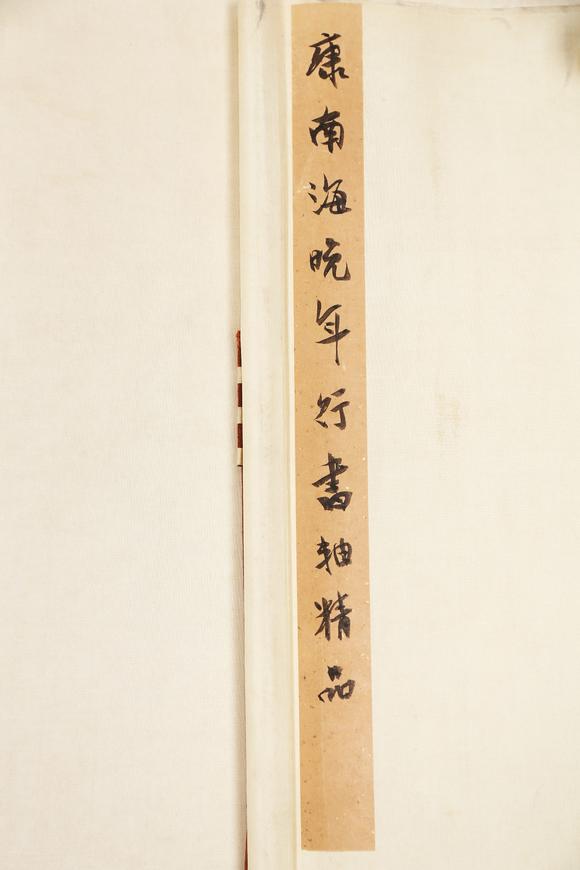 康南海晚年行書軸精品